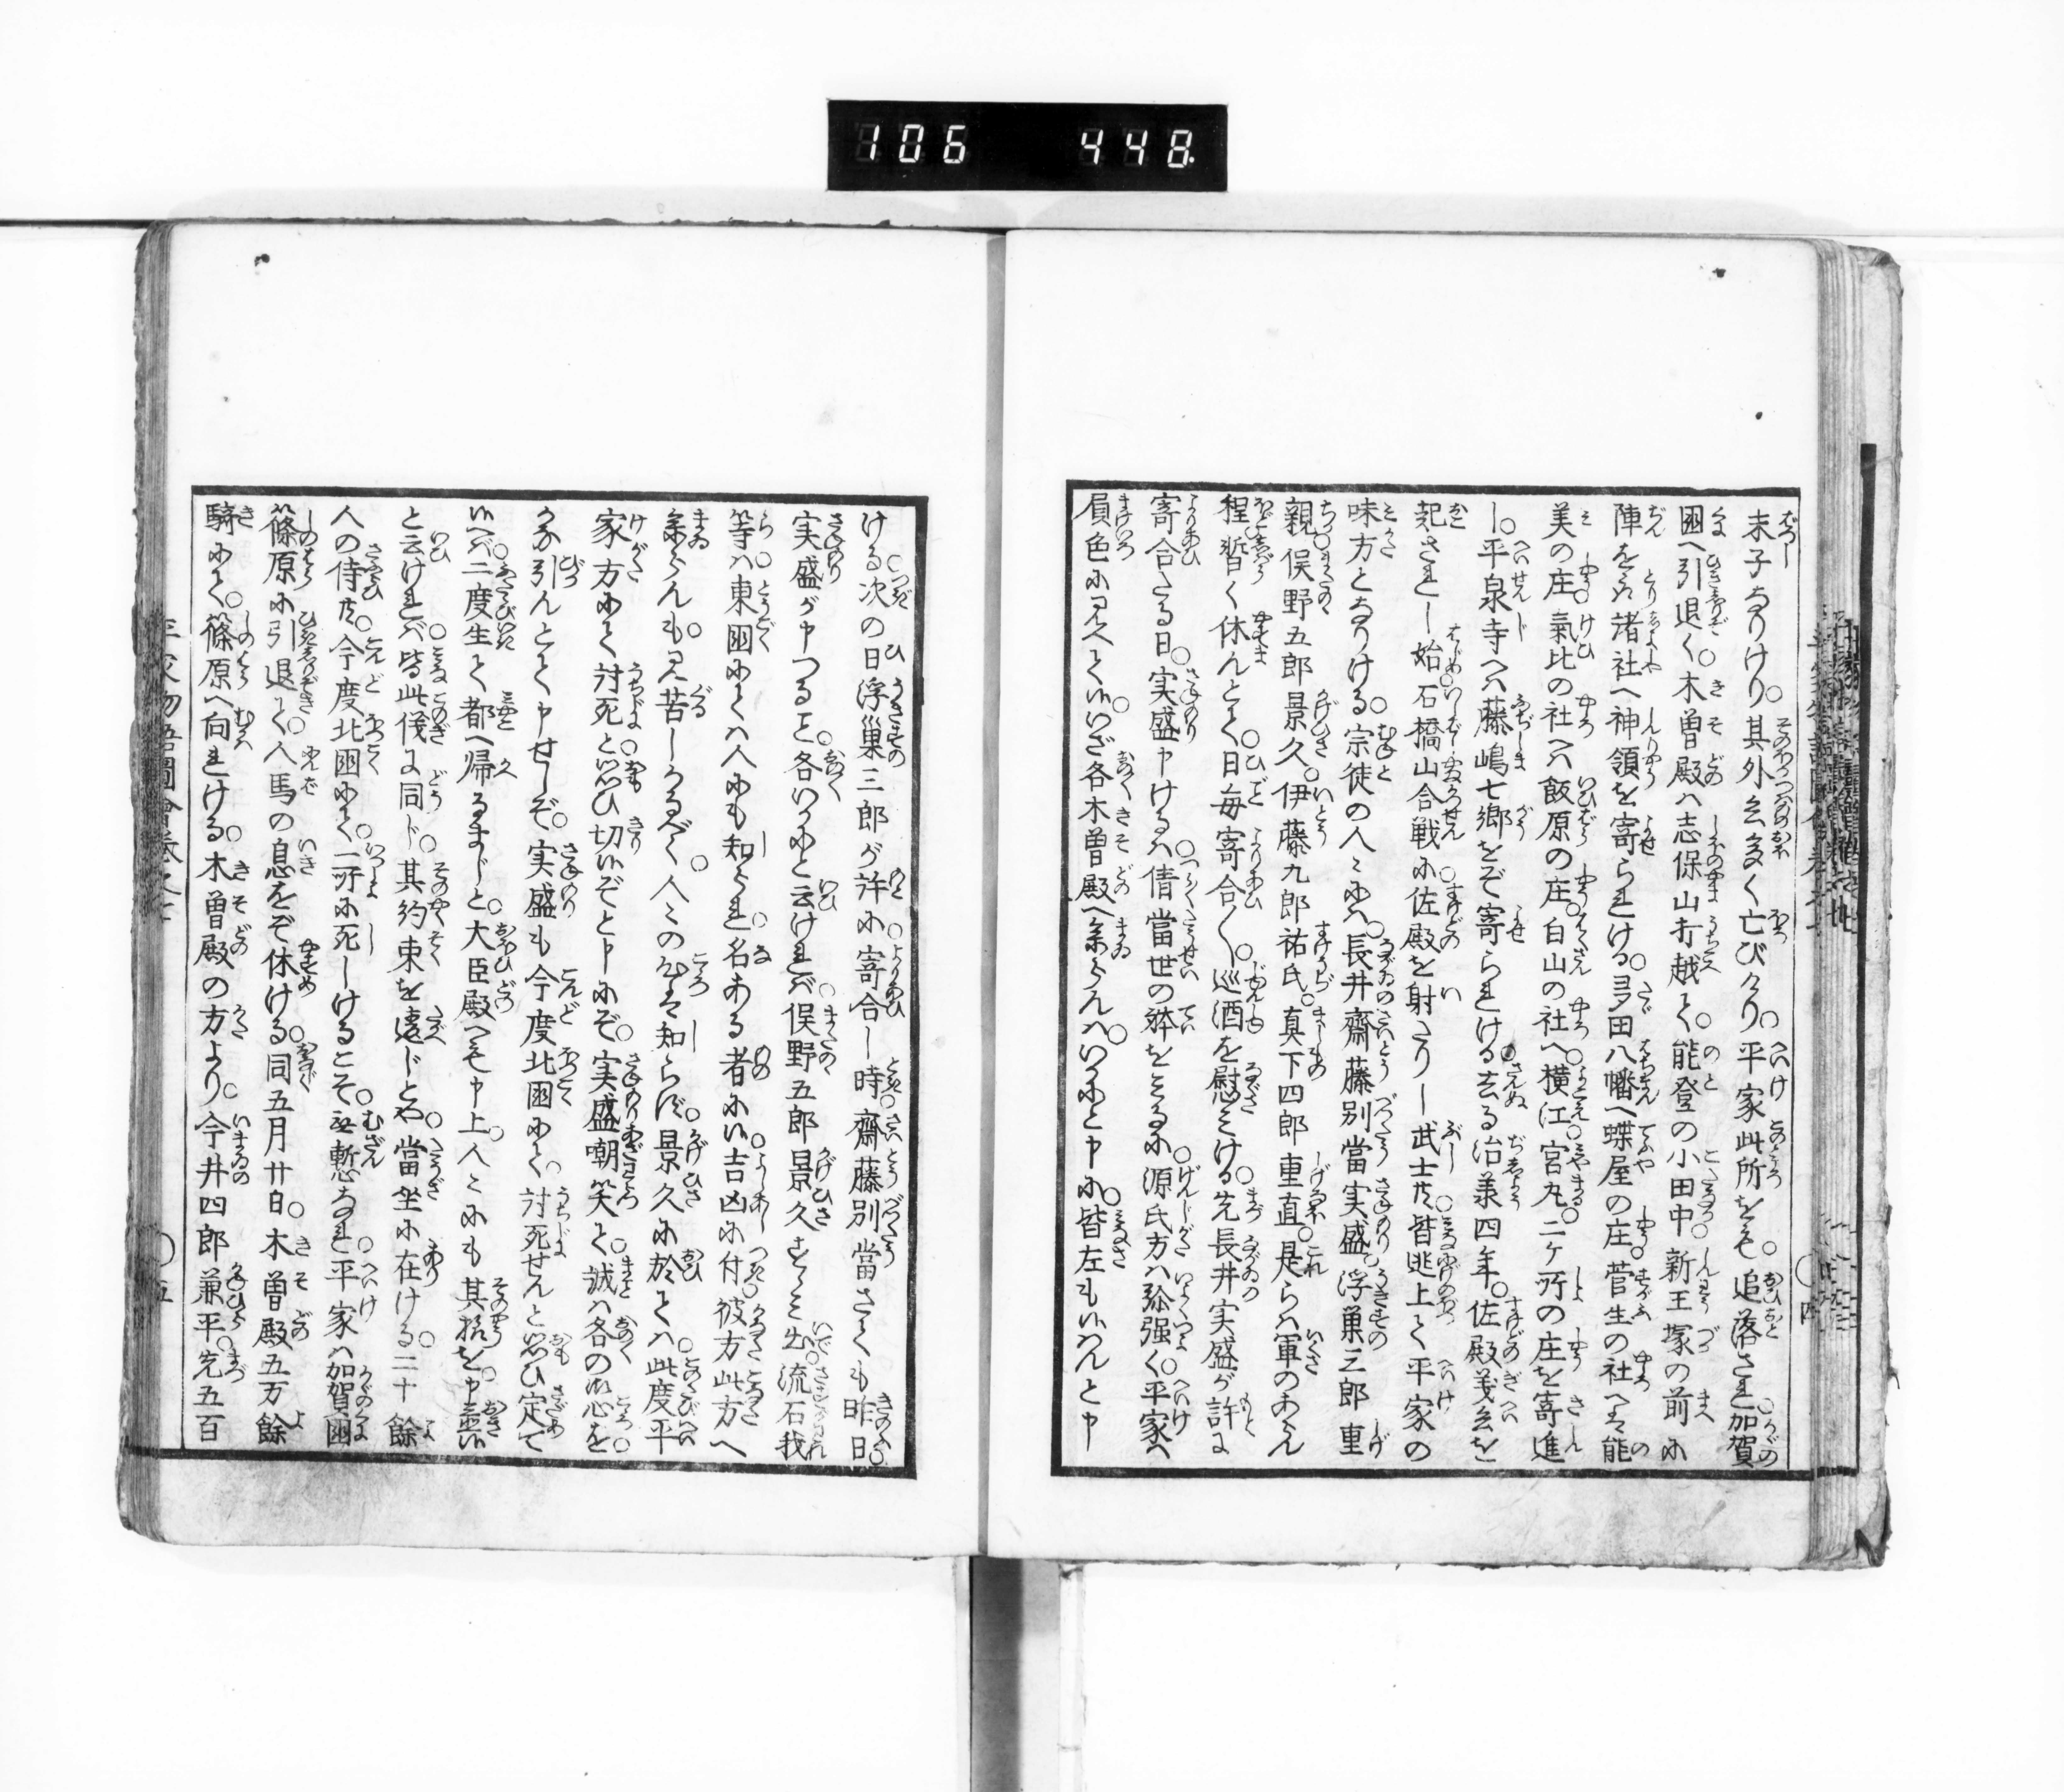 106 448
末子なりけり。其外兵多く亡びけり。平家此所をも。追落され加賀
國へ引退く。木曽殿ハ志保山打越て。能登の小田中。新王塚の前に
陣をとり諸社へ神領を寄られける。多田八幡へ蝶屋の庄。菅生の社へは能
美の庄。氣比の社へハ飯原の庄。白山の社へ横江。宮丸。二ヶ所の庄を寄進
し。平泉寺へハ藤嶋七郷をぞ寄られける去る治羕四年。佐殿義兵を
起され始石橋山合戦に佐殿を射たりし武士共。皆迯上て平家の
味方となりける。宗徒の人々にハ。長井齋藤別當実盛。浮巣三郎重
親。俣野五郎景久。伊藤九郎祐氏。真下四郎重直。是らハ軍のあらん
程暫く休んとて。日毎寄合〱。巡酒を慰みける。先長井実盛が許に
寄合たる日。実盛申けるハ倩當世の躰をみるに源氏方ハ弥强く。平家ハ
負色に見へて候。いざ各木曽殿へ参らん八。いかにと申に。皆左も候はんと申
ける。次の日浮巣三郎が許に。寄合し時。齋藤別當さても昨日。
実盛が申つる事。各いかにと云ければ。俣野五郎景久すゝみ出。流石我
等ハ。東國にてハ人にも知られ。名ある者に候。吉凶に付。彼方此方へ
参らんも。見苦しかるべく。人々の心は知らず。景久に於てハ。此度平
家方にて討死と。思ひ切候ぞと申にぞ。実盛嘲笑て。誠ハ各の御心を。
かな引んとて申せしぞ。実盛も今度北國にて。討死せんと思ひ定て
候へバ。二度生て都へ帰るまじと。大臣殿へも申上。人々にも其旨を。申置候
と云ければ。皆此儀に同じ。其約束を違じとや。當坐に在ける。二十餘
人の侍共。今度北國にて。一所に死しけるこそ。無慙なれ。平家ハ加賀國
篠原に引退て。人馬の息をぞ休ける。同五月廿日。木曽殿五万餘
騎にて。篠原へ向れける。木曽殿の方より。今井四郎兼平。先五百
平家物語圖會巻之
〇五
〇四